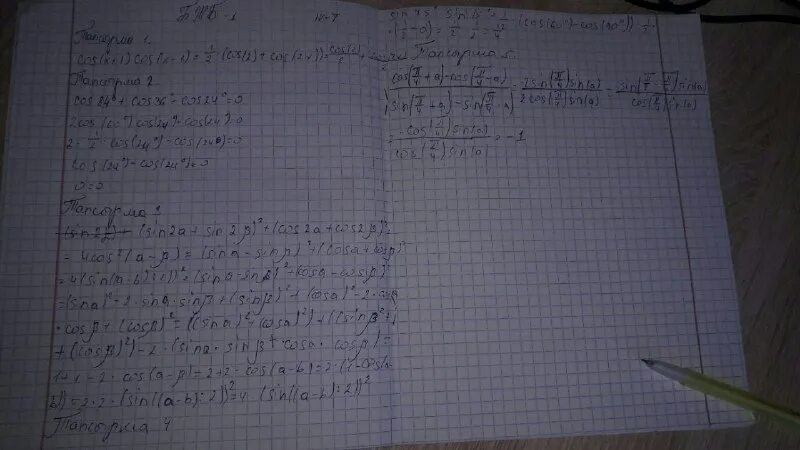 БЖБ-1
Тапсырма 1.
cos(x+1) cos(x-1) = 1/2 (cos(2) + cos(2x)) = cos(2)/2 +
Тапсырма 2
cos 84° + cos 36° - cos 24° = 0
2cos(60°) cos(24°) - cos(24°) = 0
2 · 1/2 · cos(24°) - cos(24°) = 0
cos(24°) - cos(24°) = 0
0 = 0
Тапсырма 3
(sin 2a + sin 2β)² + (cos 2a + cos 2β)² =
= 4cos² (a-β) = (sin a - sin β)² + (cos a + cos β)²
= 4(sin((a-b):2))² = (sin a - sin β)² + (cos a - cos β)²
= (sin a)² - 2 · sin a · sin β + (sin β)² + (cos a)² - 2 · cos a
· cos β + (cos β)² = ((sin a)² + (cos a)²) + ((sin β)² +
+ (cos β)²) - 2 · (sin a · sin β + cos a · cos β) =
1 + 1 - 2 · cos(a-β) = 2 - 2 · cos(a-b) = 2 · (1 - cos(a-
b)) = 2 · 2 · (sin((a-b):2))² = 4 · (sin((a-b):2))²
Тапсырма 4
sin 75° · sin 15° = 1/2 · (cos(60°) - cos(90°)) =
· (1/2 - 0) = 1/2 · 1/2 = 1/4
Тапсырма 5.
cos(π/4 + a) - cos(π/4 - a) / sin(π/4 + a) - sin(π/4 - a) = -2 sin(π/4) sin(a) / 2 cos(π/4) sin(a) = - sin(π/4) sin(a) / cos(π/4) sin(a)
= -cos(π/4) sin(a) / cos(π/4) sin(a) = -1